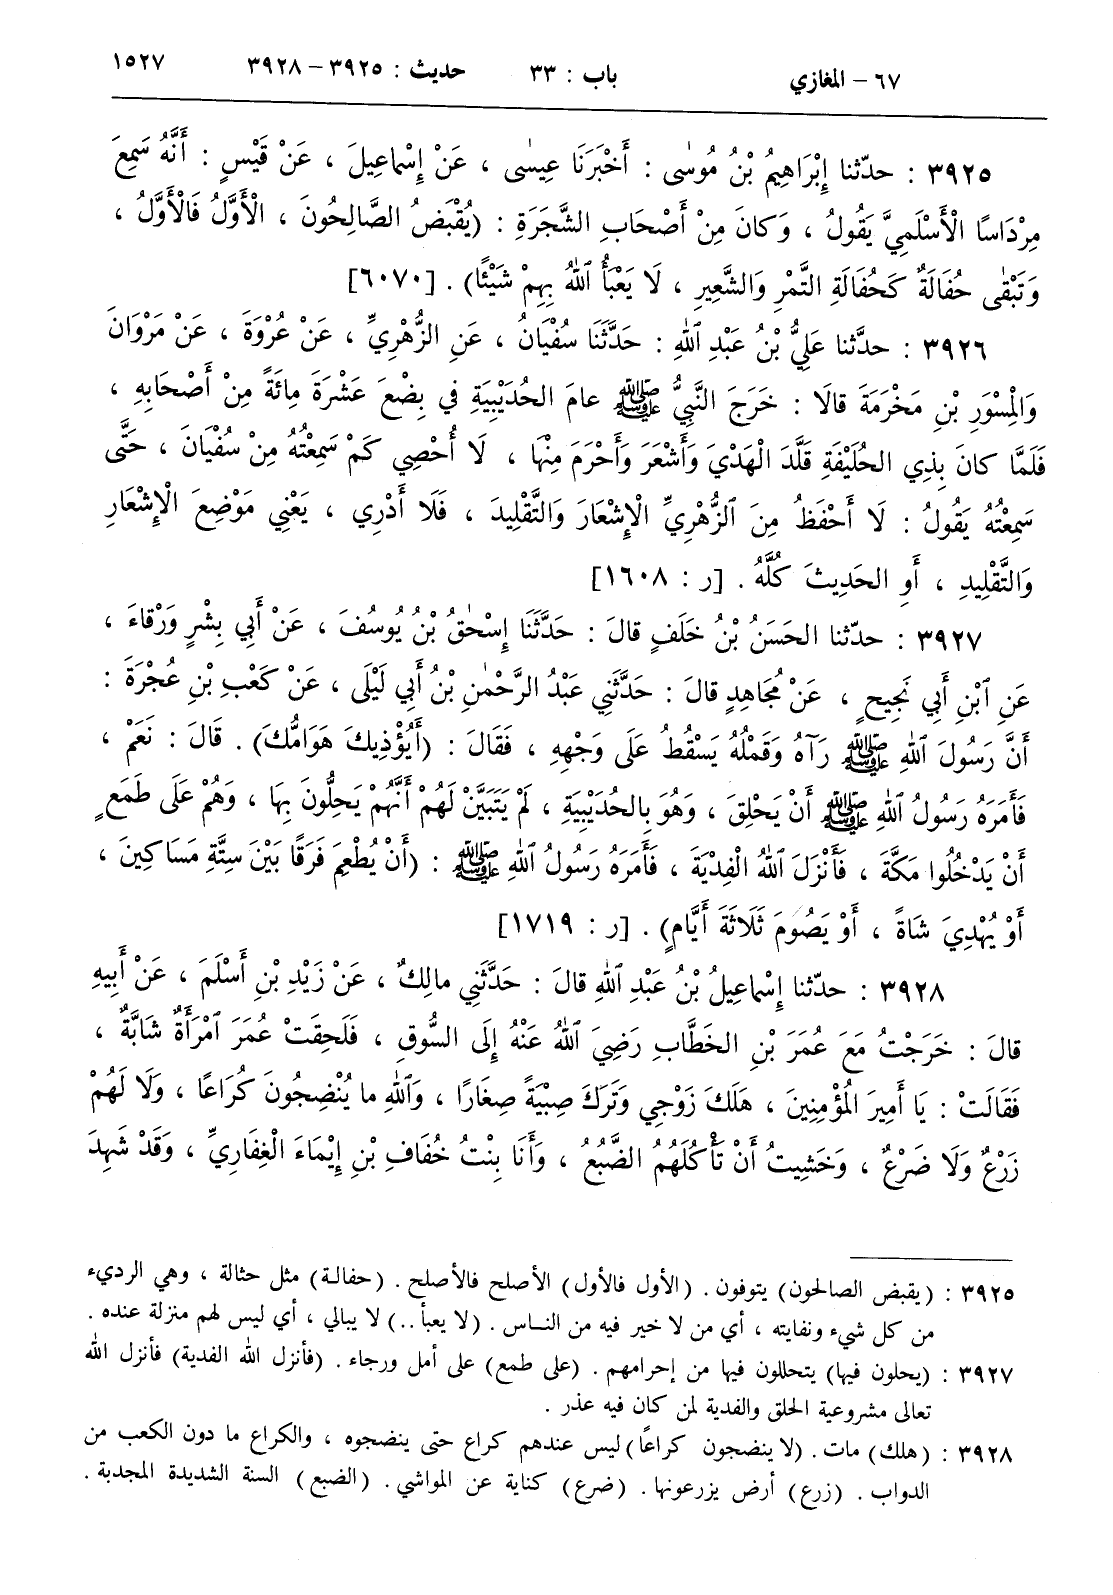 ٦٧ – المغازي باب : ٣٣ حديث : ٣٩٢٥ – ٣٩٢٨ ١٥٢٧
٣٩٢٥ : حدّثنا إِبْرَاهِيمُ بْنُ مُوسٰى : أَخْبَرَنَا عِيسٰى ، عَنْ إِسْماعِيلَ ، عَنْ قَيْسٍ : أَنَّهُ سَمِعَ
مِرْدَاسًا الْأَسْلَمِيَّ يَقُولُ ، وَكانَ مِنْ أَصْحَابِ الشَّجَرَةِ : (يُقْبَضُ الصَّالِحُونَ ، الْأَوَّلُ فَالْأَوَّلُ ،
وَتَبْقٰى حُفَالَةٌ كَحُفَالَةِ التَّمْرِ وَالشَّعِيرِ ، لَا يَعْبَأُ ٱللهُ بِهِمْ شَيْئًا) . [٦٠٧٠]
٣٩٢٦ : حدّثنا عَلِيُّ بْنُ عَبْدِ ٱللهِ : حَدَّثَنَا سُفْيَانُ ، عَنِ الزُّهْرِيِّ ، عَنْ عُرْوَةَ ، عَنْ مَرْوَانَ
وَالْمِسْوَرِ بْنِ مَخْرَمَةَ قالَا : خَرَجَ النَّبِيُّ ﷺ عامَ الحُدَيْبِيَةِ في بِضْعَ عَشْرَةَ مِائَةً مِنْ أَصْحَابِهِ ،
فَلَمَّا كانَ بِذِي الحُلَيْفَةِ قَلَّدَ الْهَدْيَ وَأَشْعَرَ وَأَحْرَمَ مِنْهَا ، لَا أُحْصِي كَمْ سَمِعْتُهُ مِنْ سُفْيَانَ ، حَتَّى
سَمِعْتُهُ يَقُولُ : لَا أَحْفَظُ مِنَ ٱلزُّهْرِيِّ الْإِشْعَارَ وَالتَّقْلِيدَ ، فَلَا أَدْرِي ، يَعْنِي مَوْضِعَ الْإِشْعَارِ
وَالتَّقْلِيدِ ، أَوِ الحَدِيثَ كُلَّهُ . [ر : ١٦٠٨]
٣٩٢٧ : حدّثنا الحَسَنُ بْنُ خَلَفٍ قالَ : حَدَّثَنَا إِسْحٰقُ بْنُ يُوسُفَ ، عَنْ أَبِي بِشْرٍ وَرْقاءَ ،
عَنِ ٱبْنِ أَبِي نَجِيحٍ ، عَنْ مُجَاهِدٍ قالَ : حَدَّثَنِي عَبْدُ الرَّحْمٰنِ بْنُ أَبِي لَيْلَى ، عَنْ كَعْبِ بْنِ عُجْرَةَ :
أَنَّ رَسُولَ ٱللهِ ﷺ رَآهُ وَقَمْلُهُ يَسْقُطُ عَلَى وَجْهِهِ ، فَقَالَ : (أَيُؤْذِيكَ هَوَامُّكَ) . قَالَ : نَعَمْ ،
فَأَمَرَهُ رَسُولُ ٱللهِ ﷺ أَنْ يَحْلِقَ ، وَهُوَ بِالحُدَيْبِيَةِ ، لَمْ يَتَبَيَّنْ لَهُمْ أَنَّهُمْ يَحِلُّونَ بِهَا ، وَهُمْ عَلَى طَمَعٍ
أَنْ يَدْخُلُوا مَكَّةَ ، فَأَنْزَلَ ٱللهُ الْفِدْيَةَ ، فَأَمَرَهُ رَسُولُ ٱللهِ ﷺ : (أَنْ يُطْعِمَ فَرَقًا بَيْنَ سِتَّةِ مَسَاكِينَ ،
أَوْ يُهْدِيَ شَاةً ، أَوْ يَصُومَ ثَلَاثَةَ أَيَّامٍ) . [ر : ١٧١٩]
٣٩٢٨ : حدّثنا إِسْماعِيلُ بْنُ عَبْدِ ٱللهِ قالَ : حَدَّثَنِي مالِكٌ ، عَنْ زَيْدِ بْنِ أَسْلَمَ ، عَنْ أَبِيهِ
قالَ : خَرَجْتُ مَعَ عُمَرَ بْنِ الخَطَّابِ رَضِيَ ٱللهُ عَنْهُ إِلَى السُّوقِ ، فَلَحِقَتْ عُمَرَ ٱمْرَأَةٌ شَابَّةٌ ،
فَقَالَتْ : يَا أَمِيرَ المُؤْمِنِينَ ، هَلَكَ زَوْجِي وَتَرَكَ صِبْيَةً صِغَارًا ، وَٱللهِ ما يُنْضِجُونَ كُرَاعًا ، وَلَا لَهُمْ
زَرْعٌ وَلَا ضَرْعٌ ، وَخَشِيتُ أَنْ تَأْكُلَهُمُ الضَّبُعُ ، وَأَنَا بِنْتُ خُفَافِ بْنِ إِيْمَاءَ الْغِفَارِيِّ ، وَقَدْ شَهِدَ
٣٩٢٥ : (يقبض الصالحون) يتوفون . (الأول فالأول) الأصلح فالأصلح . (حفالة) مثل حثالة ، وهي الرديء
من كل شيء ونفايته ، أي من لا خير فيه من النـاس . (لا يعبأ ..) لا يبالي ، أي ليس لهم منزلة عنده .
٣٩٢٧ : (يحلون فيها) يتحللون فيها من إحرامهم . (على طمع) على أمل ورجاء . (فأنزل الله الفدية) فأنزل الله
تعالى مشروعية الحلق والفدية لمن كان فيه عذر .
٣٩٢٨ : (هلك) مات . (لا ينضجون كراعًا) ليس عندهم كراع حتى ينضجوه ، والكراع ما دون الكعب من
الدواب . (زرع) أرض يزرعونها . (ضرع) كناية عن المواشي . (الضبع) السنة الشديدة المجدبة .